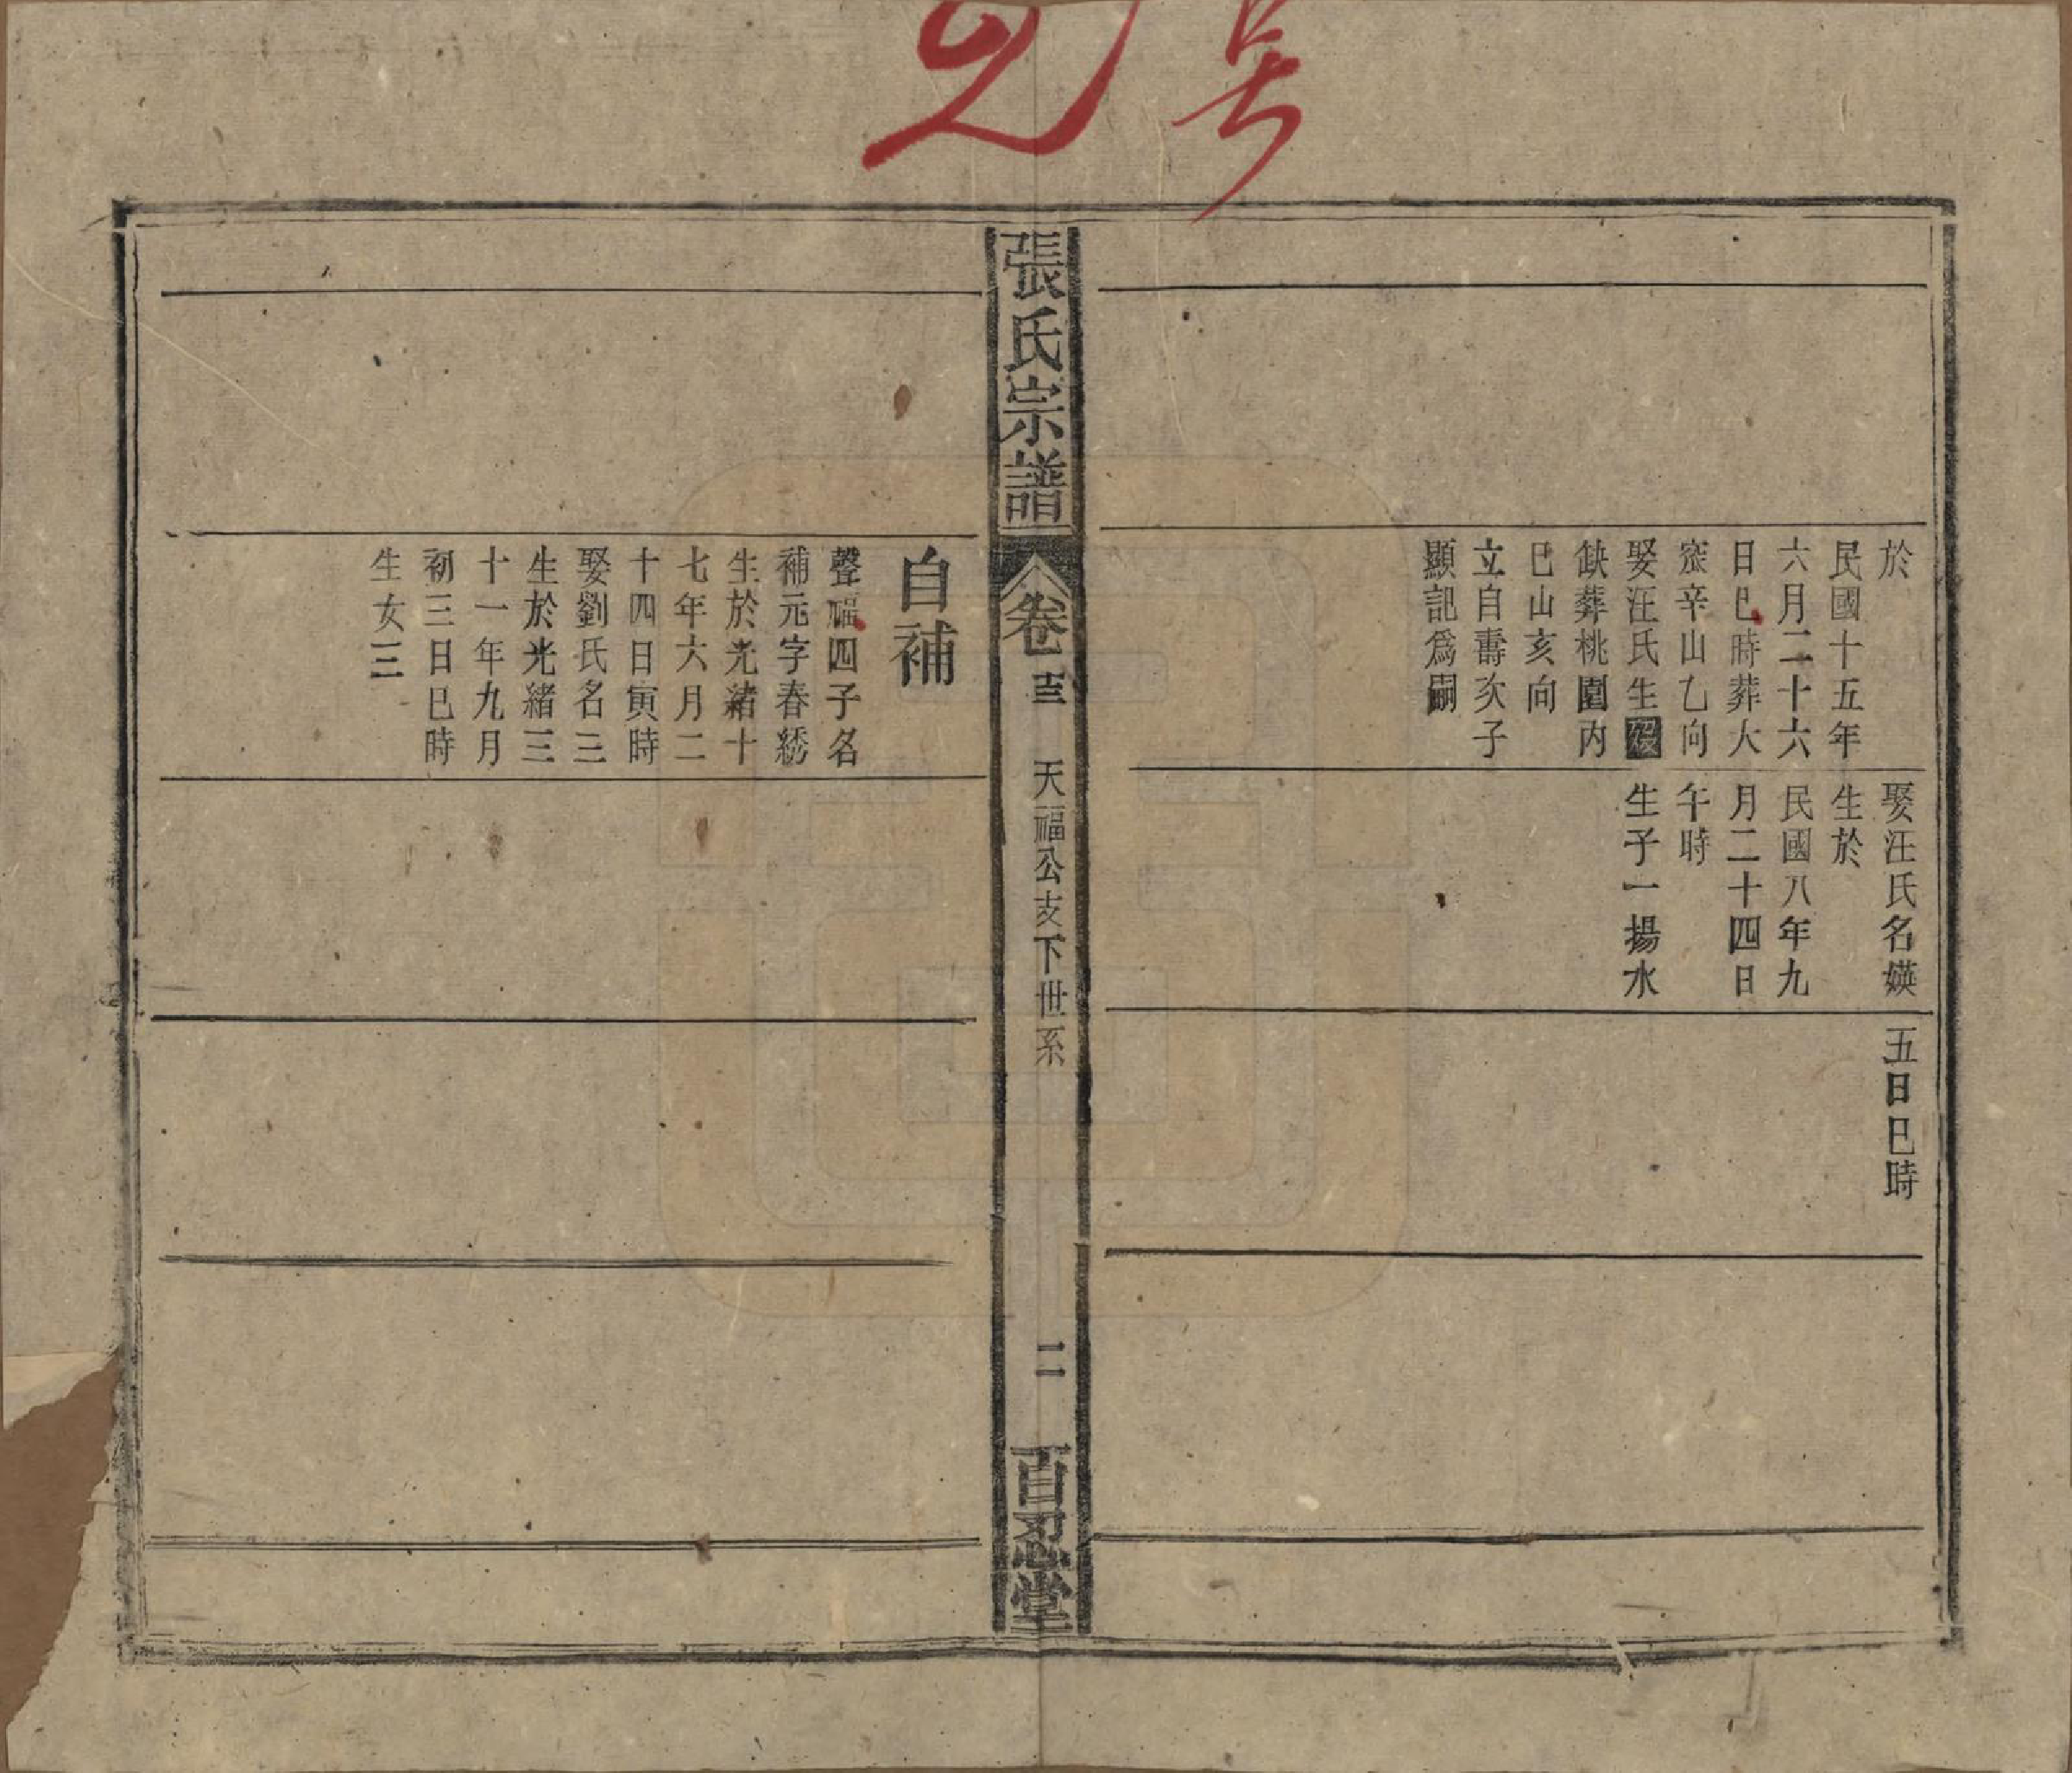 於
民國十五年
六月二十六
日巳時葬大
窊辛山乙向
娶汪氏生歿
缺葬桃園内
巳山亥向
立自壽次子
顯詔爲嗣
娶汪氏名媖
生於
民國八年九
月二十四日
午時
生子一揚水
五日巳時
張氏宗譜
卷
天福公支下世系
二
百忍堂
自補
聲福四子名
補元字春綉
生於光緒十
七年六月二
十四日寅時
娶劉氏名三
生於光緒三
十一年九月
初三日巳時
生女三